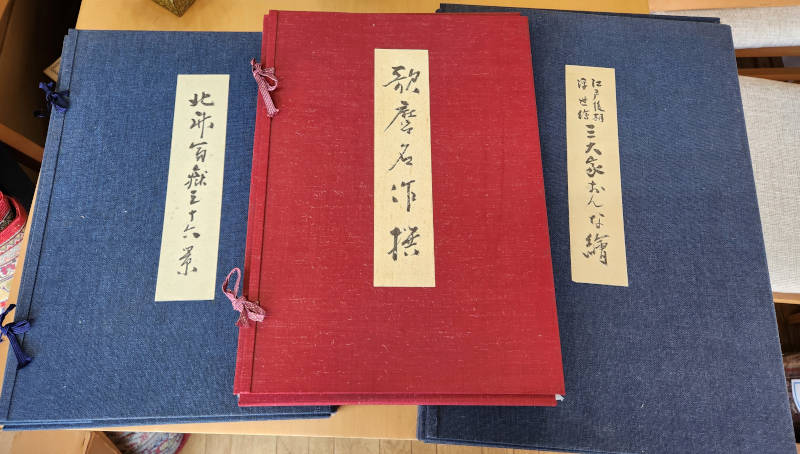 北斎冨嶽三十六景
歌麿名作撰
江戸後期
浮世絵
三大家おんな繪